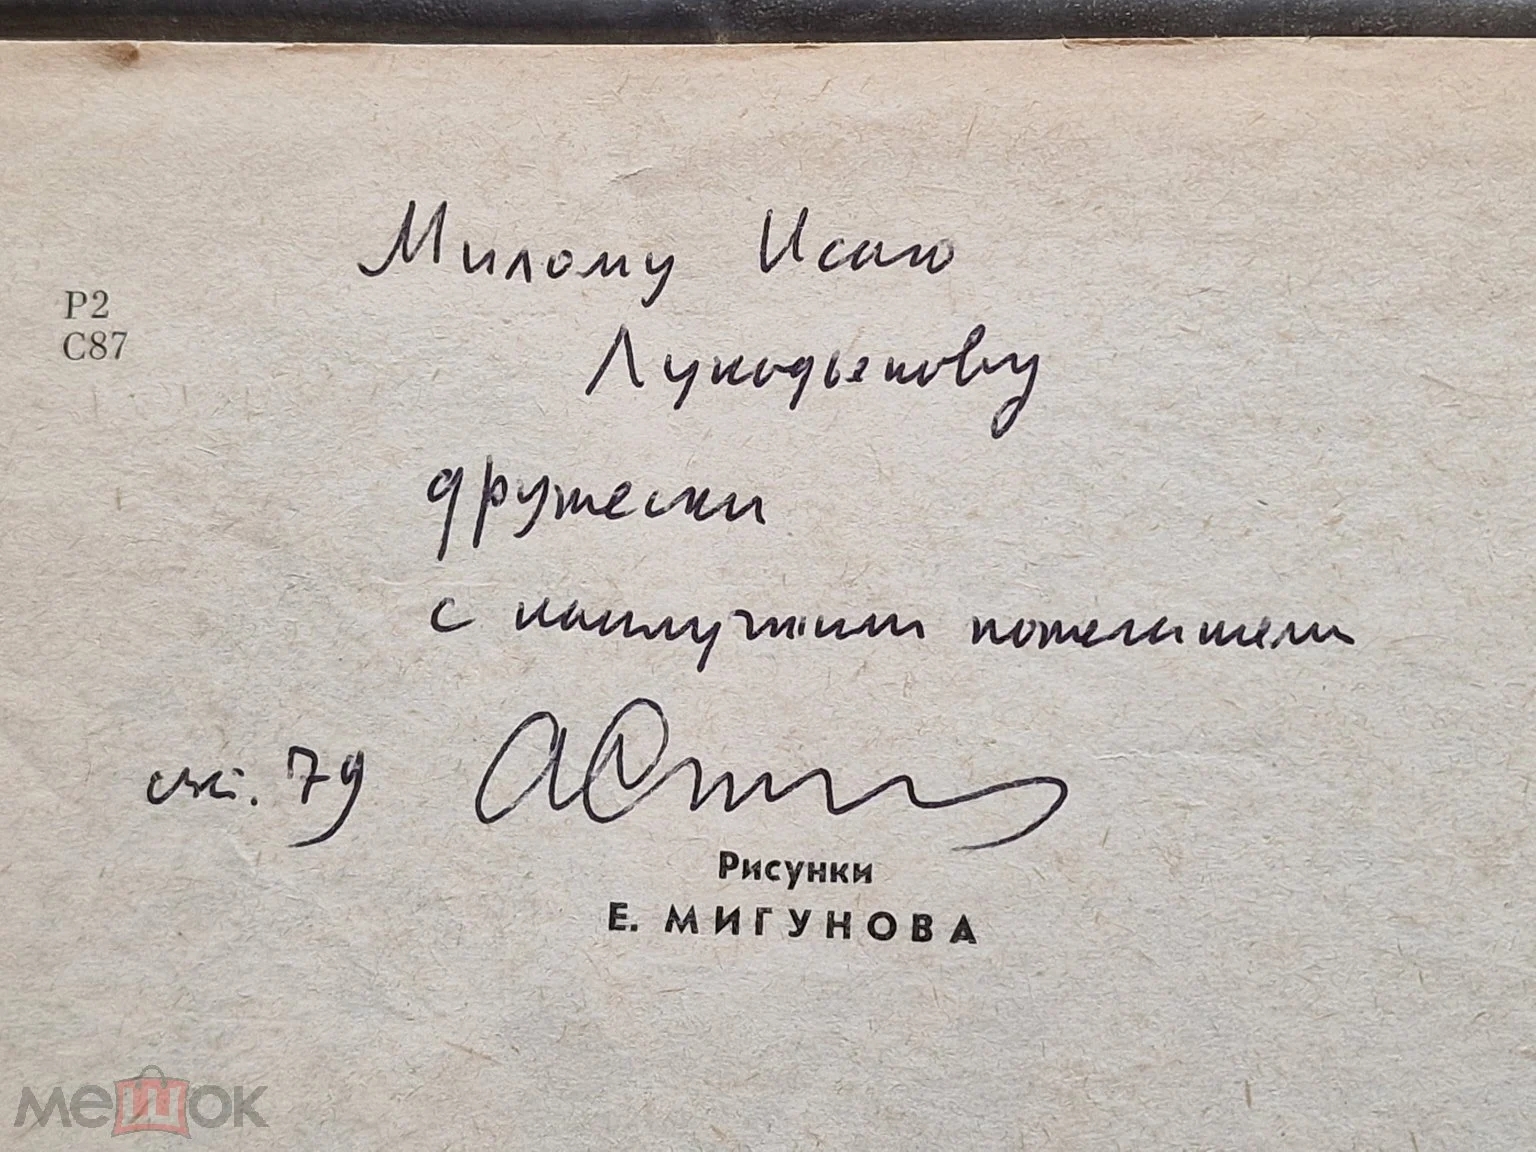 Милому Исаю
Р2
С87
Лукодьянову
дружески
с наилучшими пожеланиями
79
Рисунки
Е. МИГУНОВА
мешок